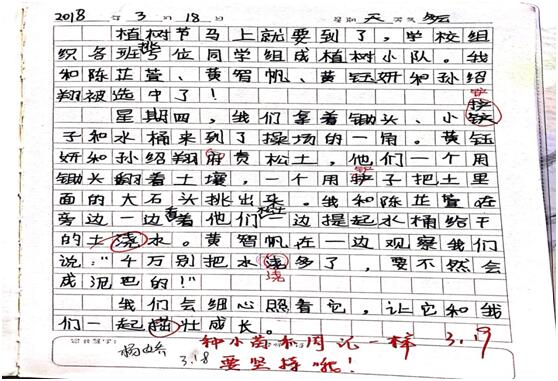 2018 年 3 月 18 日 星期 天
植树节马上就要到了，学校组
织各班挑5位同学组成植树小队。我
和陈芷萱、黄智帆、黄钰妍和孙绍
翔被选中了！
铲
星期四，我们拿着锄头、小
子和水桶来到了操场的一角。黄钰
妍和孙绍翔负责松土，他们一个用
铲
锄头翻着土壤，一个用铲子把土里
面的大石头挑出来。我和陈芷萱在
旁边一边看着他们一边提起水桶给干
的土浇水。黄智帆在一边观察我们
说："千万别把水浇多了，要不然会
浇
成泥巴的！"
我们会细心照看它，让它和我
们一起茁壮成长。
种小苗和周记一样 3.19
3.18
要坚持哦！